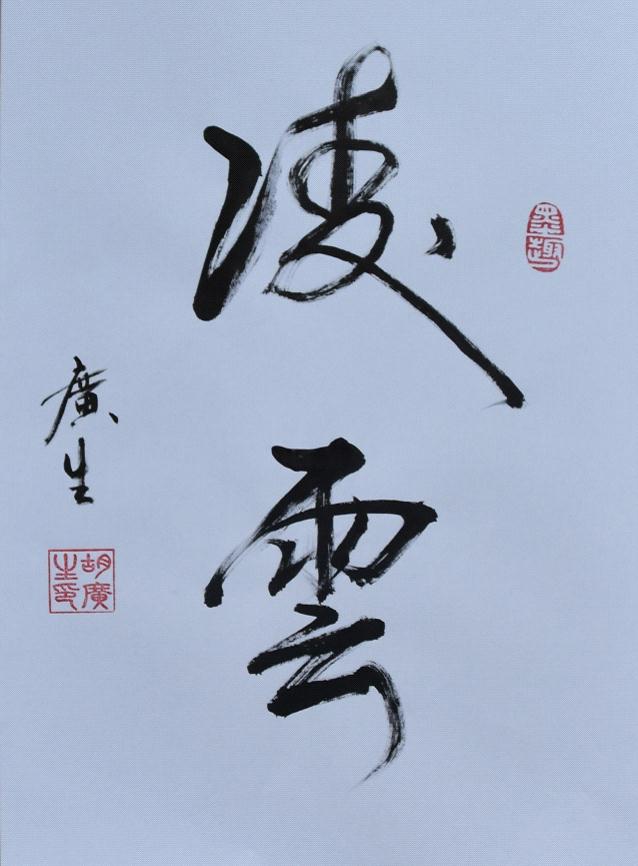 凌雲
墨趣
廣生
胡廣生印